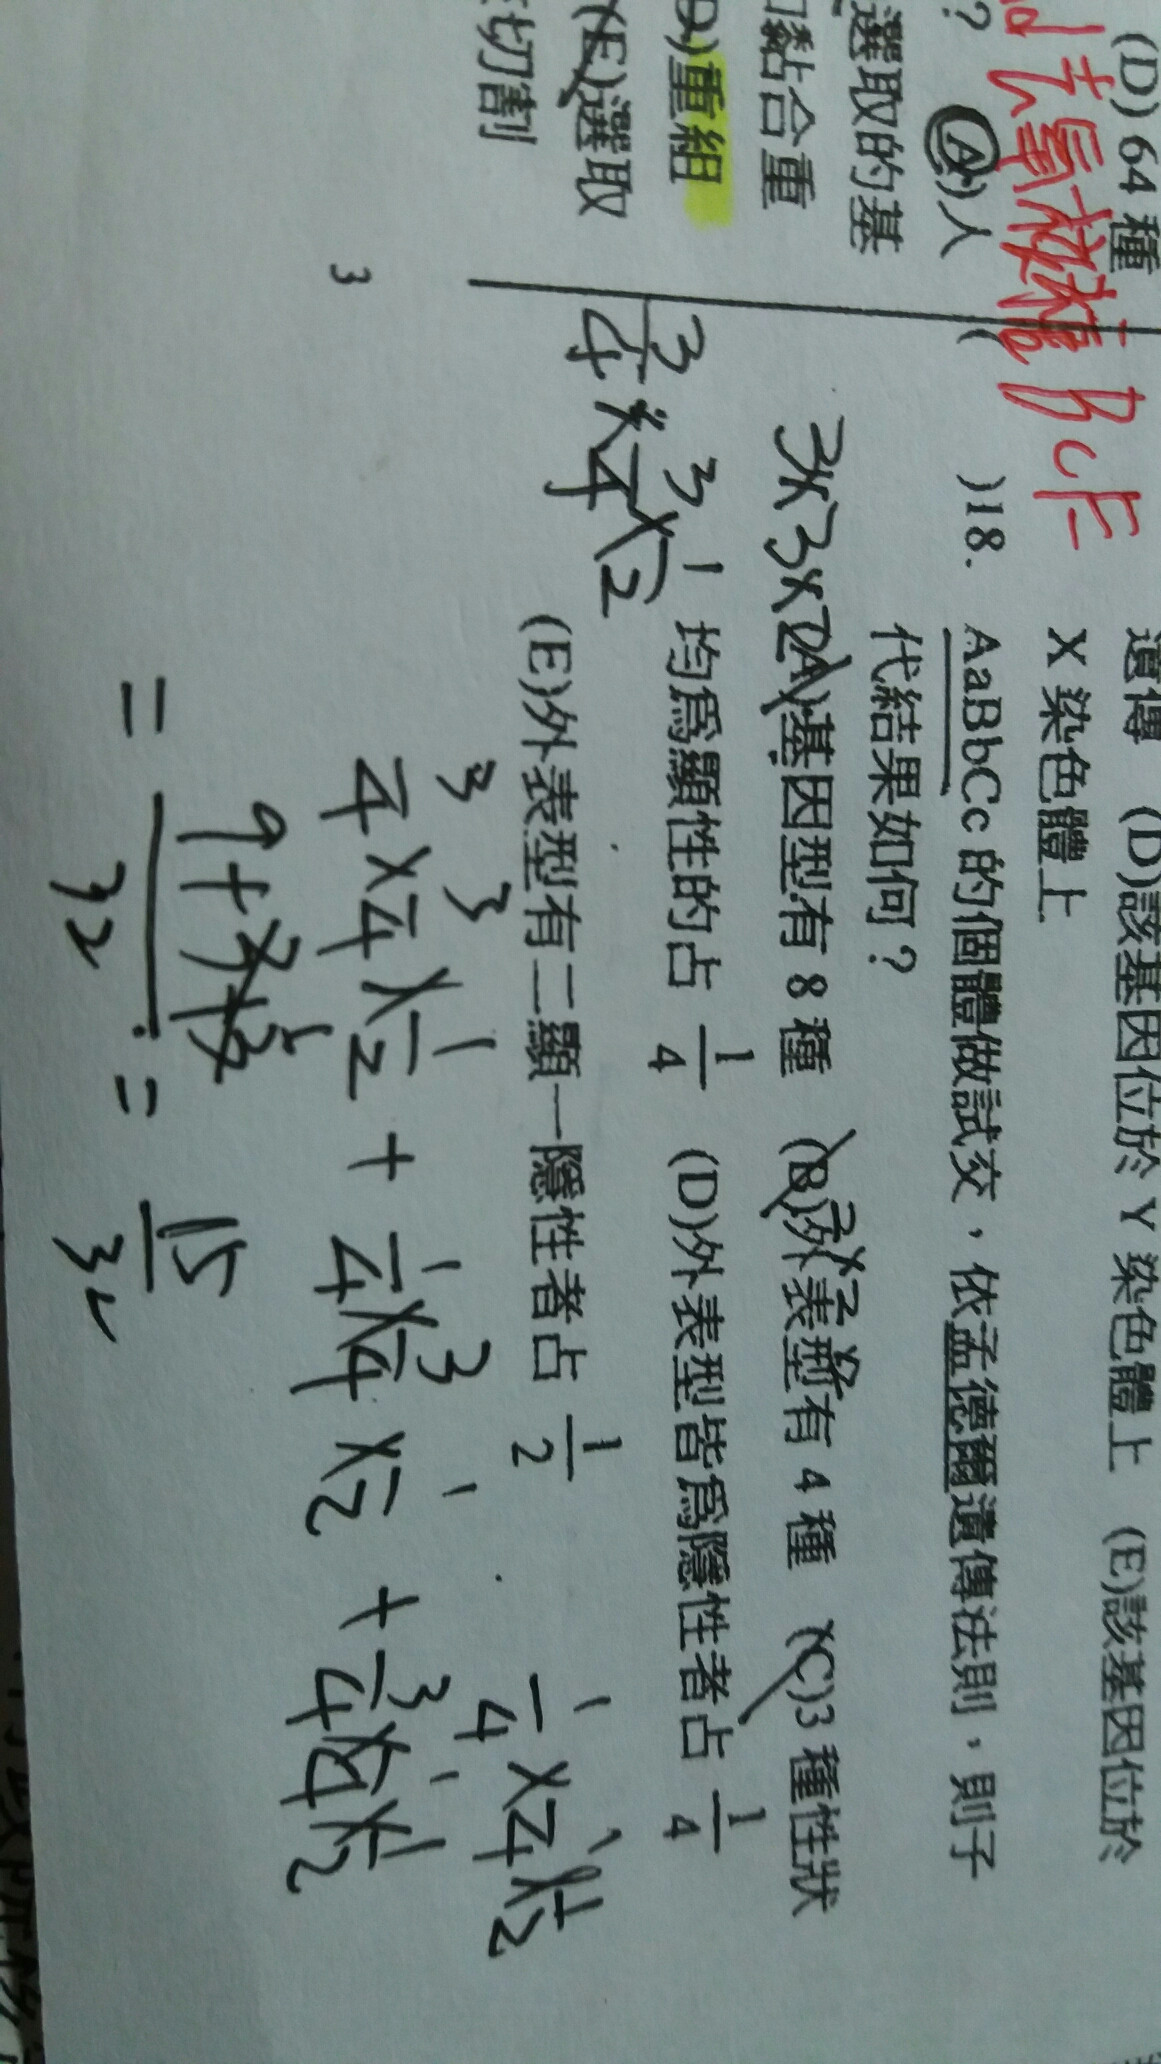 (D) 64 種
?
(A)人
選取的基
黏合重
D)重組
(E)選取
切割
3
去氧核糖
BCE
遺傳 (D)該基因位於 Y 染色體上 (E)該基因位於
X 染色體上
( )18. AaBbCc 的個體做試交，依孟德爾遺傳法則，則子
代結果如何？
3×3×2
2×2×2
(A)基因型有 8 種 (B)外表型有 4 種 (C)3 種性狀
均為顯性的占 1/4 (D)外表型皆為隱性者占 1/4
(E)外表型有二顯一隱性者占 1/2
3/4 × 3/4 × 1/2
1/4 × 1/4 × 1/2
3/4 × 3/4 × 1/2 + 1/4 × 3/4 × 1/2 + 3/4 × 1/4 × 1/2
=
32
= 15/32